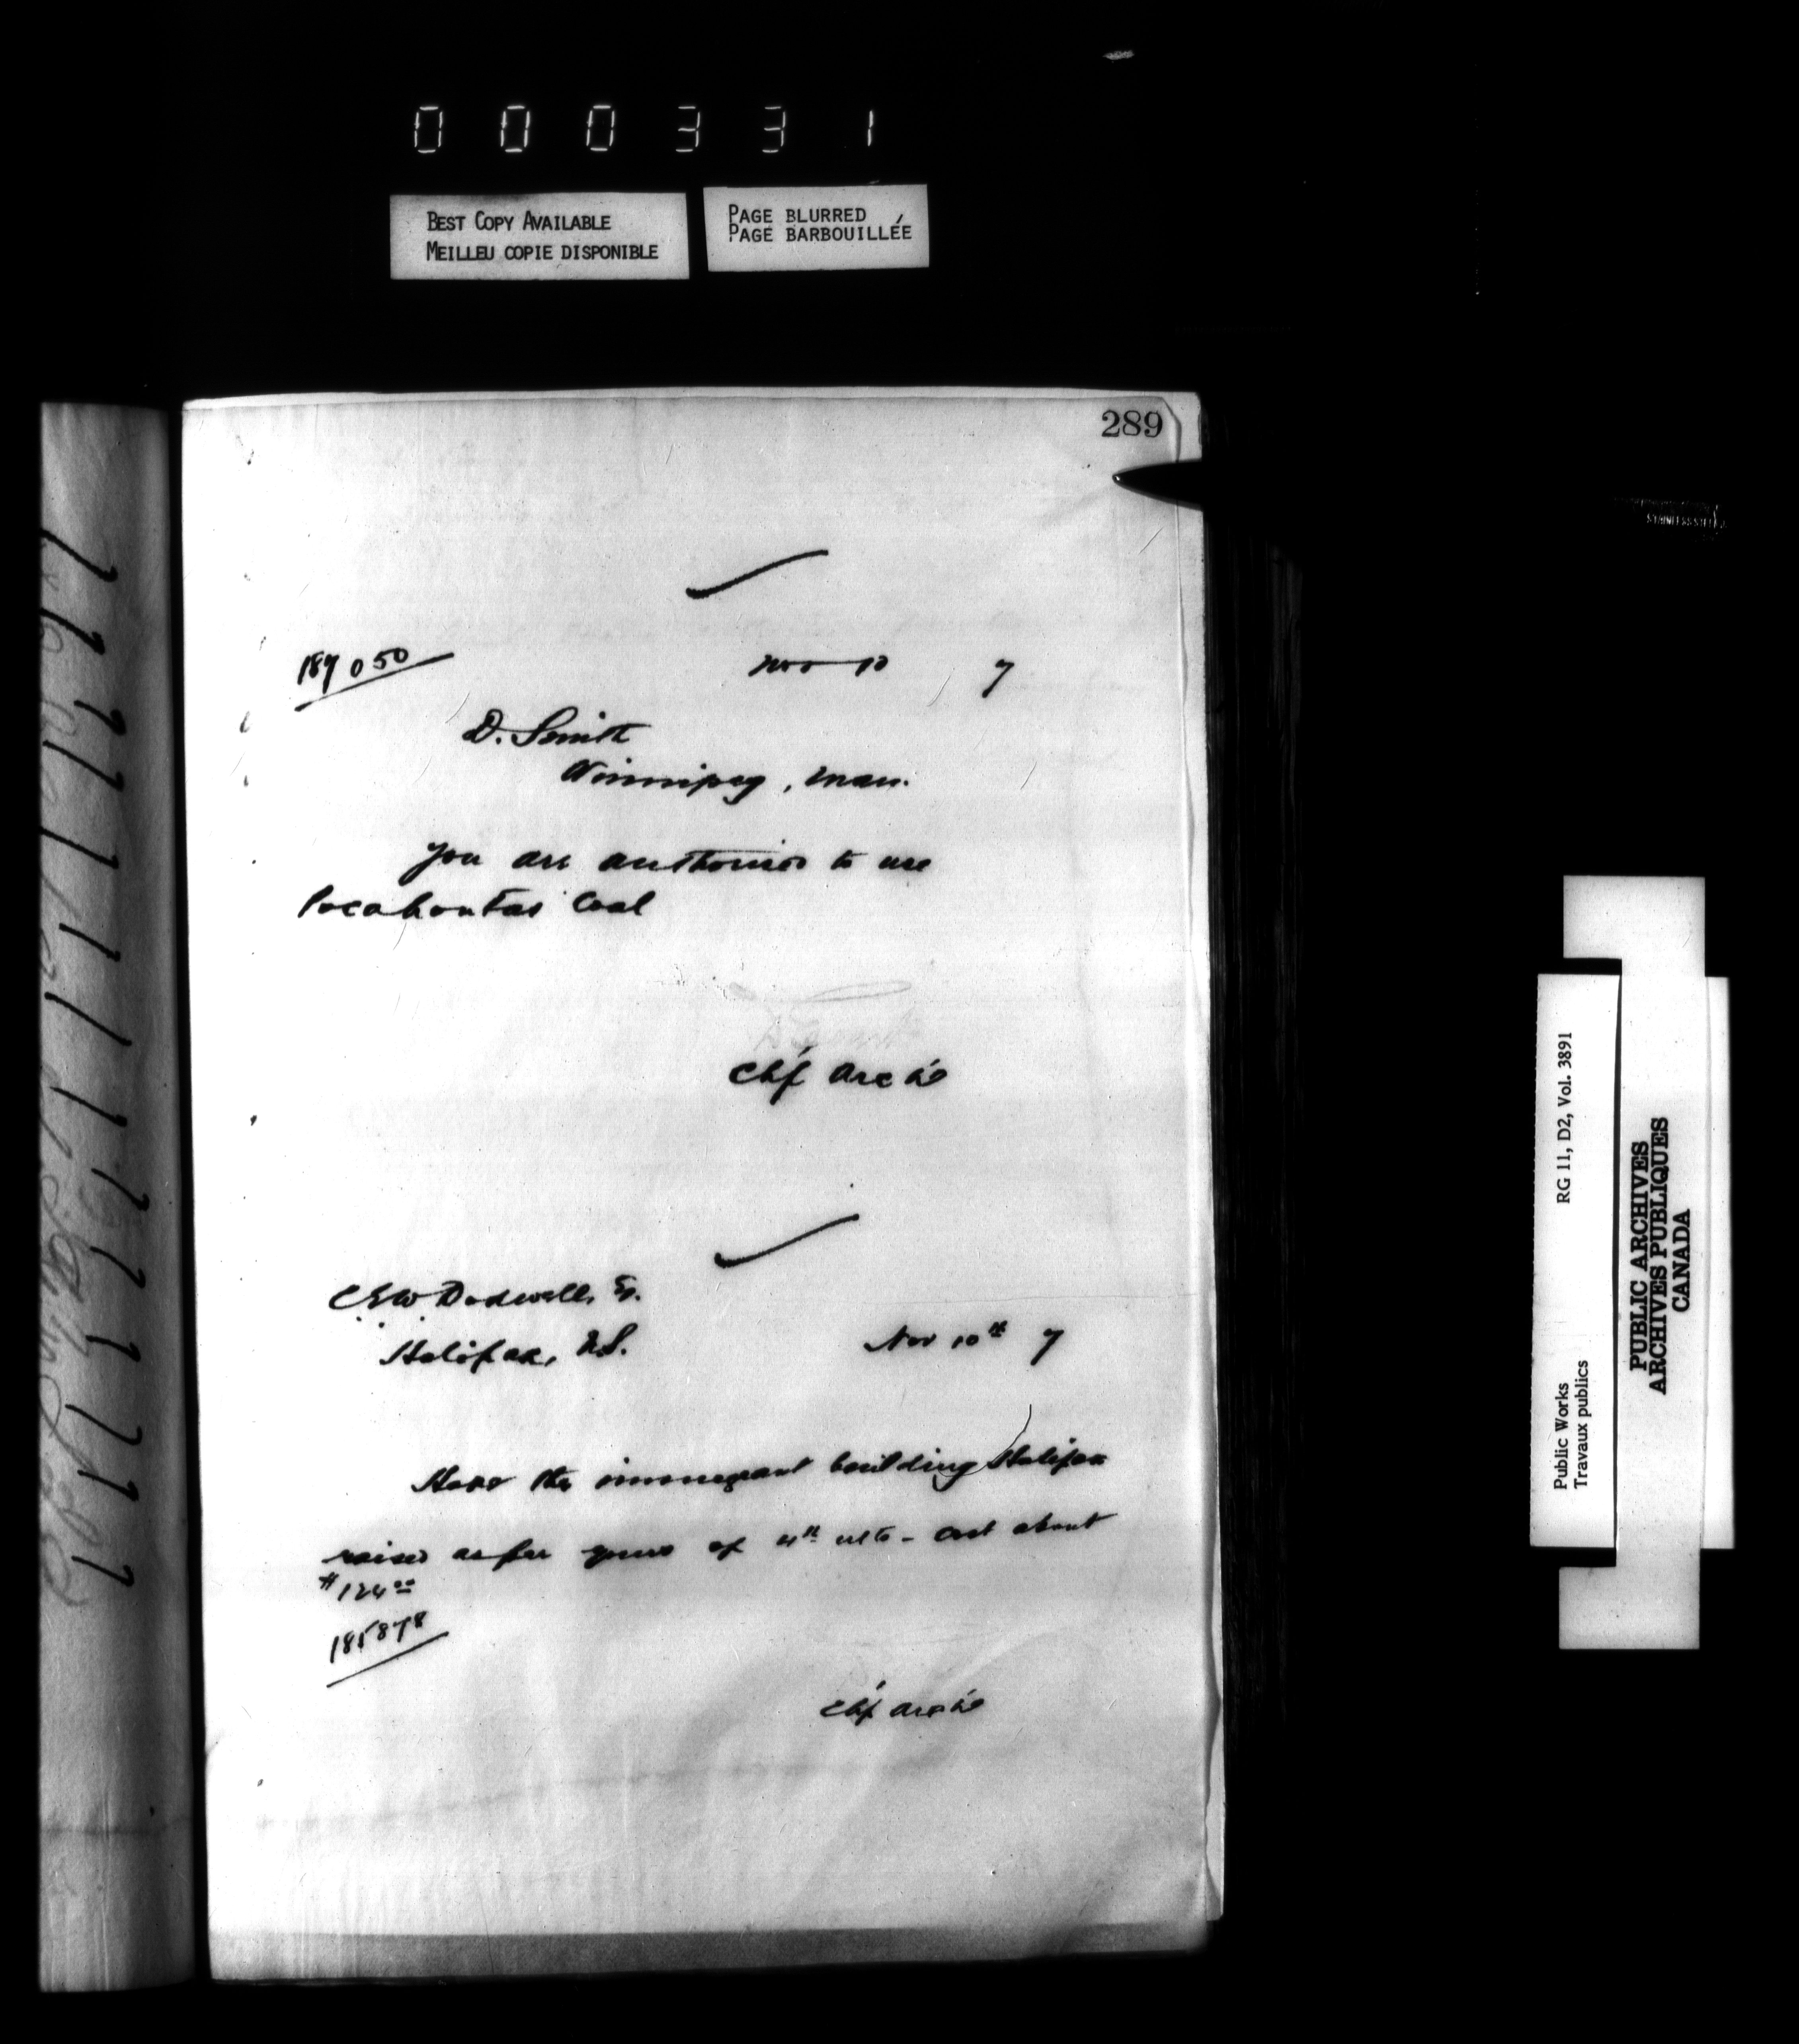 000331
BEST COPY AVAILABLE
MEILLEU COPIE DISPONIBLE
PAGE BLURRED
PAGE BARBOUILLÉE
289
187050
Nov 10 7
D. Smith
Winnipeg, Man.
You are authorised to use
Pocahontas Coal
Chf Arch
CEW Dodwell, E.
Halifax, N.S.
Nov 10th 7
Have the immigrant building Halifax
raised as per yours of 4th ulto - Cost about
$124.00
185878
Chf Arch
STAINLESS STEEL
Public Works
Travaux publics
RG 11, D2, Vol. 3891
PUBLIC ARCHIVES
ARCHIVES PUBLIQUES
CANADA